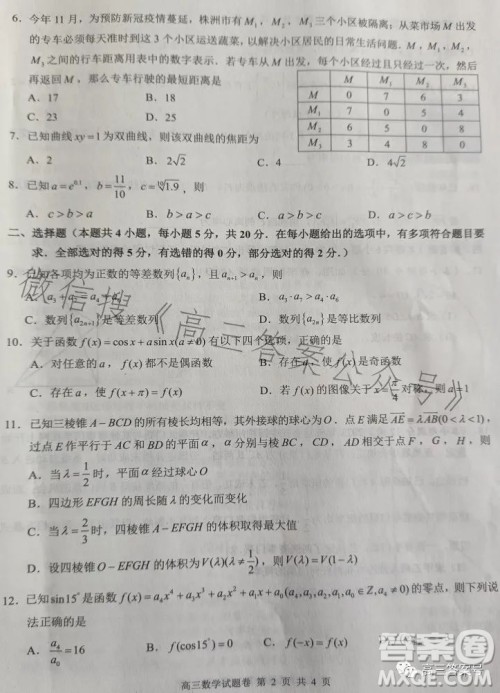 6. 今年 11 月，为预防新冠疫情蔓延，株洲市有 M₁，M₂，M₃ 三个小区被隔离；从菜市场 M 出
发的专车必须每天准时到这 3 个小区运送蔬菜，以解决小区居民的日常生活问题．M，M₁，M₂，
M₃之间的行车距离用表中的数字表示．若专车从 M 出发，每个小区只经过一次，然后
再返回 M，那么专车行驶的最短距离是
A．17 B．18
C．23 D．25
M M₁ M₂ M₃
M 0 7 6 3
M₁ 7 0 5 4
M₂ 6 5 0 8
M₃ 3 4 8 0
7. 已知曲线 xy=1 为双曲线，则该双曲线的焦距为
A．2 B．2√2 C．4 D．4√2
8. 已知 a=e^0.1，b=11/10，c=¹⁰√1.9，则
A．c>b>a B．b>a>c C．c>a>b D．a>b>c
二、选择题（本题共 4 小题，每小题 5 分，共 20 分．在每小题给出的选项中，有多项符合题目要
求．全部选对的得 5 分，有选错的得 0 分，部分选对的得 2 分．）
9. 已知各项均为正数的等差数列{aₙ}，且 aₙ₊₁>aₙ，则
A．a₃+a₇=a₄+a₆ B．a₃·a₇>a₄·a₆
C．数列{a₂ₙ₊₁}是等差数列 D．数列{a₂ₙ}是等比数列
10. 关于函数 f(x)=cos x+a sin x(a≠0) 有以下四个选项，正确的是
A．对任意的 a，f(x)都不是偶函数 B．存在 a，使 f(x)是奇函数
C．存在 a，使 f(x+π)=f(x) D．若 f(x)的图像关于 x=π/4 对称，则 a=1
11. 已知三棱锥 A−BCD 的所有棱长均相等，其外接球的球心为 O．点 E 满足 AE=λAB(0<λ<1)，
过点 E 作平行于 AC 和 BD 的平面 α，α 分别与棱 BC、CD、AD 相交于点 F，G，H，则
A．当 λ=1/2 时，平面 α 经过球心 O
B．四边形 EFGH 的周长随 λ 的变化而变化
C．当 λ=2/3 时，四棱锥 A−EFGH 的体积取得最大值
D．设四棱锥 O−EFGH 的体积为 V(λ)(λ≠1/2)，则 V(λ)=V(1−λ)
12. 已知 sin15° 是函数 f(x)=a₄x⁴+a₃x³+a₂x²+a₁x+a₀(a₄,a₃,a₂,a₁,a₀∈Z,a₄≠0) 的零点，则下列说
法正确的是
A．a₄/a₀=16 B．f(cos15°)=0 C．f(−x)=f(x)
高三数学试题卷 第 2 页 共 4 页
微信搜《高三答案公众号》
答案圈